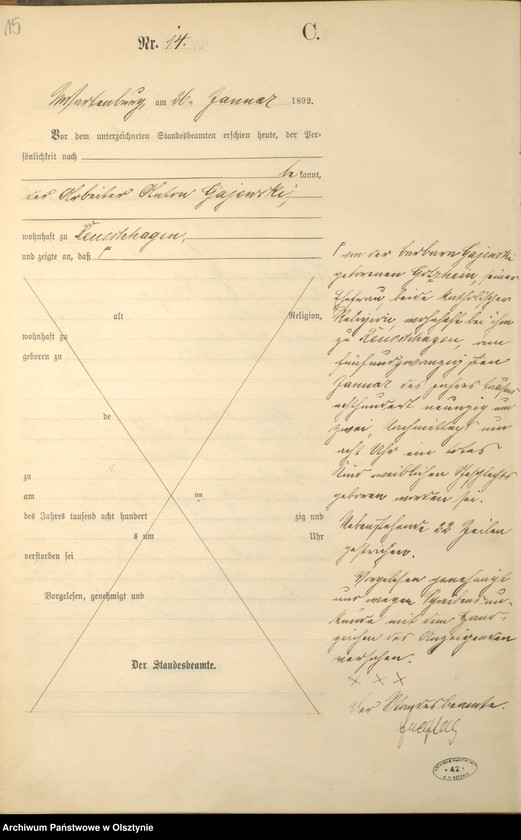 15
C.
Nr. 14.
Wartenburg, am 26. Januar 1892.
Vor dem unterzeichneten Standesbeamten erschien heute, der Per-
sönlichkeit nach
be kannt,
der Arbeiter Anton Gajewski,
wohnhaft zu Leuschhagen,
und zeigte an, daß Γ
alt Religion,
wohnhaft zu
geboren zu
de
zu
am im
des Jahres tausend acht hundert zig und
s um Uhr
verstorben sei
Vorgelesen, genehmigt und
Der Standesbeamte.
Γ von der Barbara Gajewski
geborenen Gotzhein, seiner
Ehefrau, beide katholischer
Religion, wohnhaft bei ihm
zu Leuschhagen, am
fünfundzwanzigsten
Januar des Jahres tausend
achthundert neunzig und
zwei, Nachmittags um
acht Uhr ein todtes
Kind weiblichen Geschlechts
geboren worden sei.
Nebenstehende 22 Zeilen
gestrichen.
Vorgelesen genehmigt
und wegen Schreibensun-
kunde mit dem Hand-
zeichen des Anzeigenden
versehen.
× × ×
Der Standesbeamte.
ARCHIWUM PAŃSTWOWE
42
W OLSZTYNIE
Archiwum Państwowe w Olsztynie